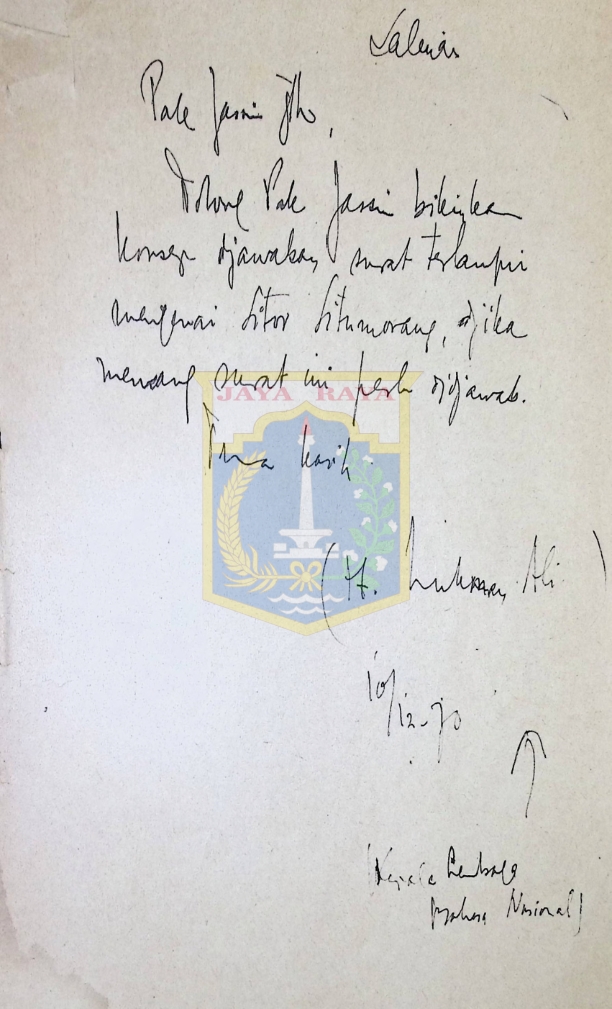 Pak Jassin Yth,
Tolong Pak Jassin bikinkan
konsep djawaban surat terlampir
mengenai Sitor Situmorang, djika
memang surat ini perlu didjawab.
JAYA RAYA
Trima kasih
(H. Lukman Ali)
10/12-70
(Kepala Lembaga
Bahasa Nasional)